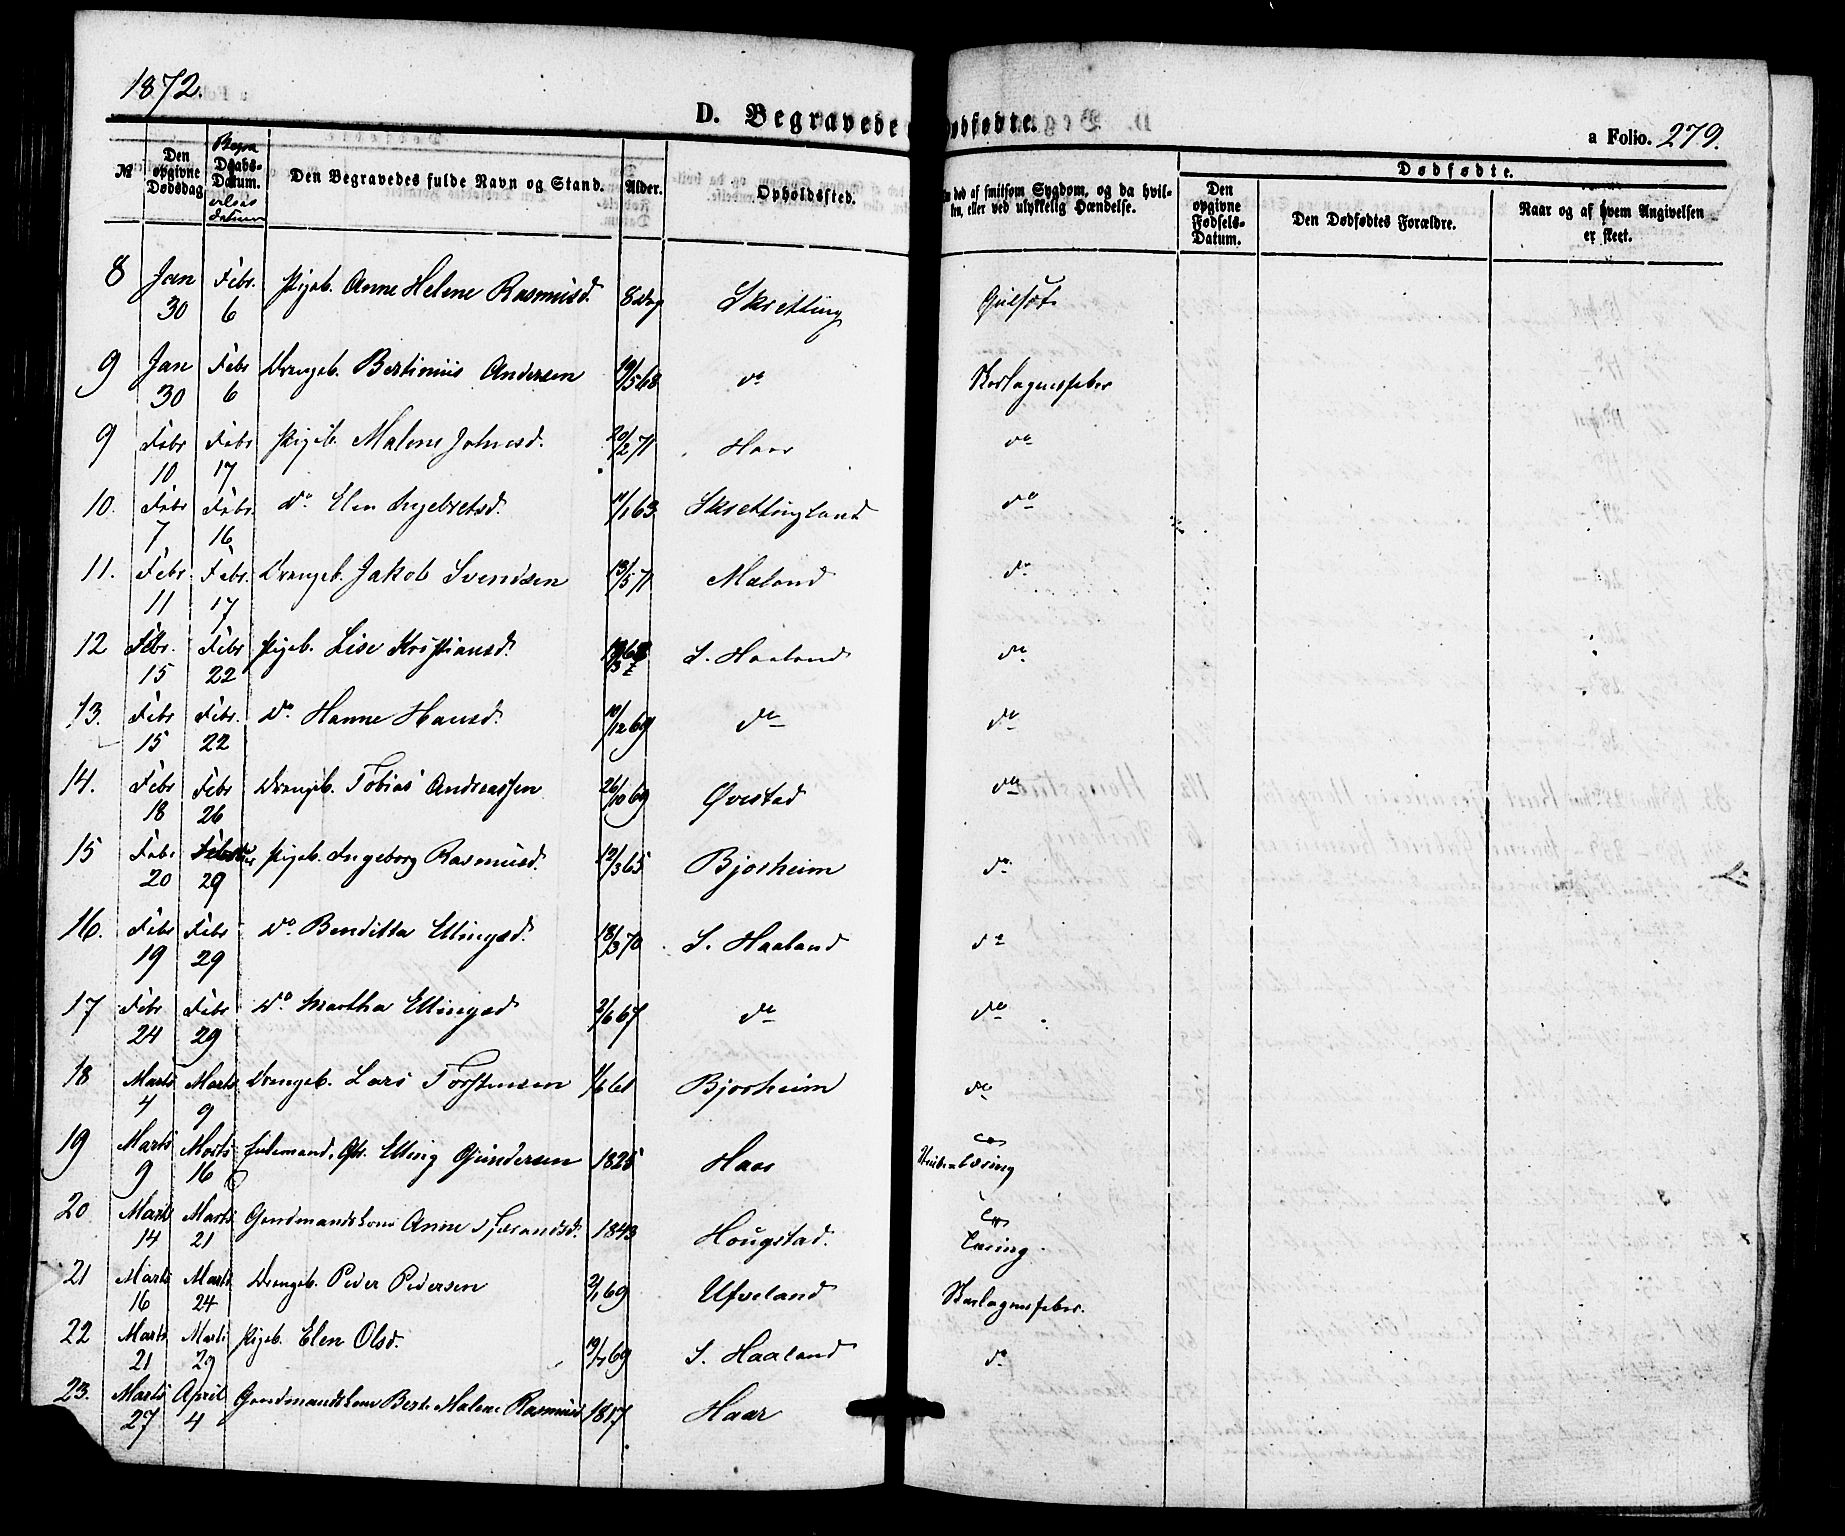 1872.
D. Begravede
Dødfødte.
a Folio. 279.
№ Den opgivne Dødsdag Daabs-Datum. Den Begravedes fulde Navn og Stand. Alder. Opholdsted. død af smitsom Sygdom, og da hvil-
ken, eller ved ulykkelig Hændelse.
Dødfødte.
Den opgivne Fødsels-Datum. Den Dødfødtes Forældre. Naar og af hvem Angivelsen er skeet.
8 Jan 30 Febr. 6 Pigeb. Anne Helene Rasmusd. 8 Dag Skretting Gulsot
9 Jan 30 Febr 6 Drengeb. Bertinius Andersen 19/5 68 do Skarlagensfeber
9 Febr 10 Febr 17 Pigeb. Malene Johnsd. 20/2 71 Haar do
10. Febr 7 Febr. 16 do Elen Ingebretsd. 11/1 63 Skrettingland do
11. Febr. 11 Febr. 17 Drengeb. Jakob Svendsen 13/5 71 Mæland do
12 Febr. 15 Febr 22 Pigeb. Lise Kristiansd. S. Haaland do
13. Febr 15 Febr. 22 do Hanne Hansd. 10/12 69 do do
14. Febr 18 Febr 26 Drengeb. Tobias Andreassen 26/10 69 Øvestad do
15 Febr 20 29 Pigeb. Ingeborg Rasmusd. 12/3 65 Bjorheim do
16. Febr 19 Febr 29 do Benditta Ellingsd. 18/3 70 S. Haaland do
17 Febr 24 Febr 29 do Martha Ellingsd 2/6 67 do do
18 Marts 4 Marts 9 Drengeb. Lars Torstensen 1/6 61 Bjorheim do
19 Marts 9 Marts 16 Elling Gundersen 1825 Haar
20 Marts 14 Marts 21 Gaardmandskone Anne Sjurandsd. 1843 Hougstad. Tæring.
21 Marts 16 Marts 24 Drengeb. Peder Pedersen 2/1 69 Ufveland Skarlagensfeber.
22 Marts 21 Marts 29 Pigeb. Elen Olsd. 19/7 69 S. Haaland do
23. Marts 27 April 4 Gaardmandskone Berte Malene Rasmusd 1817 Haar